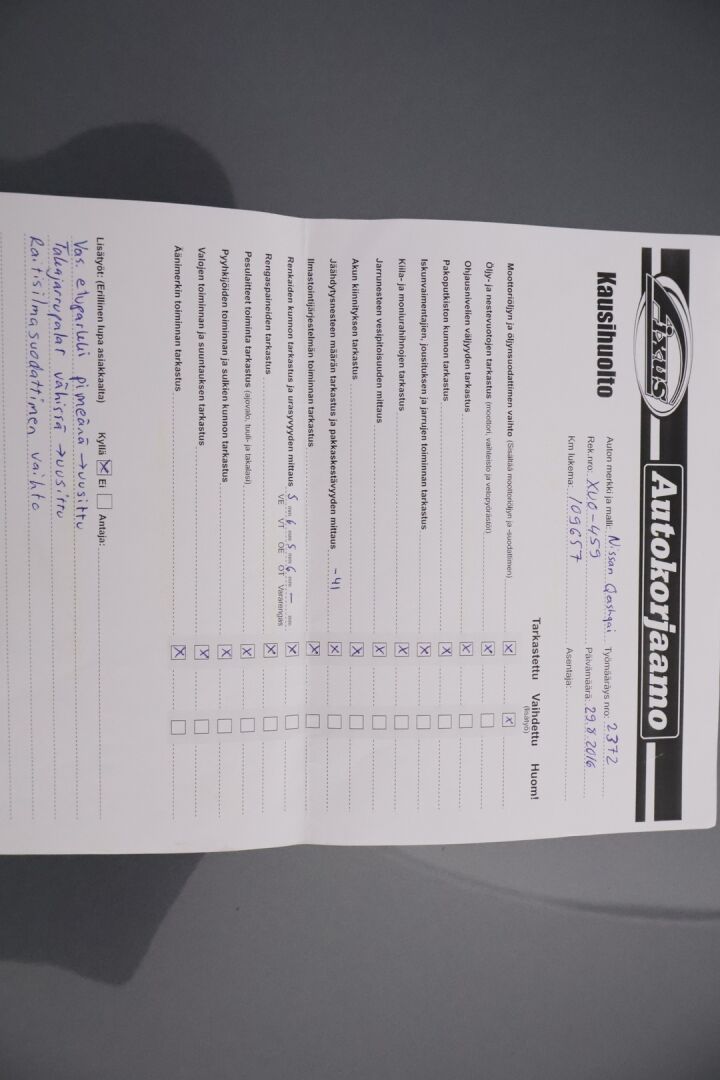 Fixus Autokorjaamo
Kausihuolto
Auton merkki ja malli: Nissan Qashqai Työmääräys nro: 2372
Rek.nro: XUO-459 Päivämäärä: 29.8 2016
Km lukema: 109657 Asentaja:
Tarkastettu Vaihdettu Huom!
(lisätyö)
Moottoriöljyn ja öljynsuodattimen vaihto (Sisältää moottoriöljyn ja -suodattimen) X X
Öljy- ja nestevuotojen tarkastus (moottori, vaihteisto ja vetopyörästöt) X
Ohjausnivelien välyyden tarkastus X
Pakoputkiston kunnon tarkastus X
Iskunvaimentajien, jousituksen ja jarrujen toiminnan tarkastus X
Kiila- ja moniurahihnojen tarkastus X
Jarrunesteen vesipitoisuuden mittaus X
Akun kiinnityksen tarkastus X
Jäähdytysnesteen määrän tarkastus ja pakkaskestävyyden mittaus -41 X
Ilmastointijärjestelmän toiminnan tarkastus X
Renkaiden kunnon tarkastus ja urasyvyyden mittaus 5 mm 6 mm 5 mm 6 mm — mm X
VE VT OE OT Vararengas
Rengaspaineiden tarkastus X
Pesulaitteet toiminta tarkastus (ajovalo, tuuli- ja takalasi) X
Pyyhkijöiden toiminnan ja sulkien kunnon tarkastus X
Valojen toiminnan ja suuntauksen tarkastus X
Äänimerkin toiminnan tarkastus X
Lisätyöt: (Erillinen lupa asiakkaalta) Kyllä X Ei Antaja:
Vas. etuparkki pimeänä → uusittu
Takajarrupalat vähissä → uusittu
Raitisilmasuodattimen vaihto